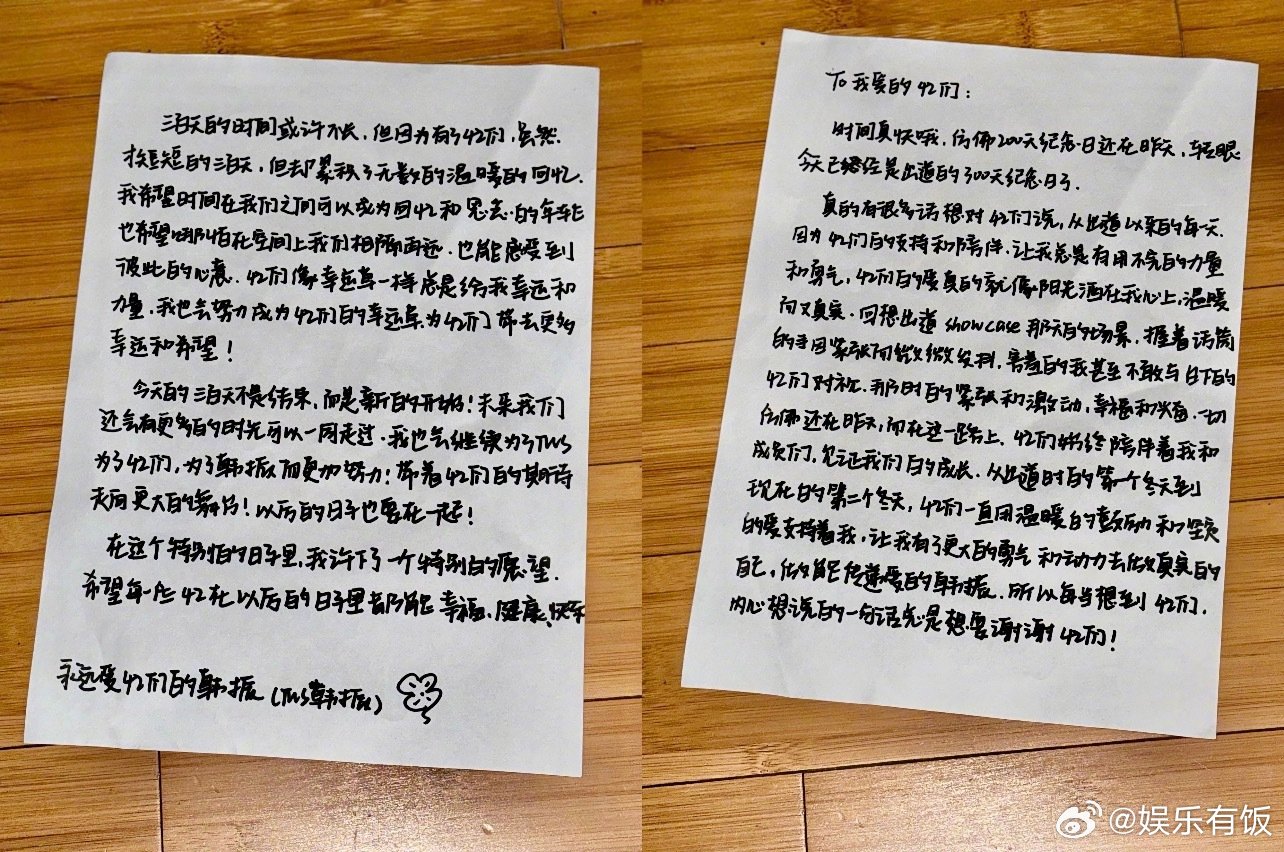 To 我爱的 42们：
时间真快哦，仿佛200天纪念日还在昨天，转眼
今天已经是出道的300天纪念日了
真的有很多话想对42们说，从出道以来的每一天
因为42们的支持和陪伴，让我总是有用不完的力量
和勇气，42们的爱真的就像阳光洒在我心上，温暖
而又真实．回想出道showcase那天的场景，握着话筒
的手因紧张而微微发抖，害羞的我甚至不敢与台下的
42们对视．那时的紧张和激动，幸福和
仿佛还在昨天，而在这一路上，42们始终陪伴着我和
成员们，见证我们的成长．从出道时的第一个冬天到
现在的第二个冬天，42们一直用温暖的鼓励和坚定
的爱支持着我，让我有了更大的勇气和动力去做真实的
自己，做能传递爱的韩振．所以每当想到42们，
内心想说的一句话总是想要谢谢42们！
三百天的时间或许不长，但因为有了42们，虽然
才短短的三百天，但却累积了无数的温暖的回忆．
我希望时间在我们之间可以成为回忆和思念的
也希望哪怕在空间上我们相隔再远．也能感受到
彼此的心意．42们像幸运草一样总是给我幸运和
力量，我也会努力成为42们的幸运草为42们带去更多
幸运和希望！
今天的三百天不是结束，而是新的开始！未来我们
还会有更多的时光可以一同走过．我也会继续为了TWS
为了42们，为了韩振而更加努力！带着42们的期待
走向更大的舞台！以后的日子也要在一起！
在这个特别的日子里，我许下了一个特别的愿望．
希望每一位42在以后的日子里都能幸福、健康、快乐
永远爱42们的韩振（TWS韩振）
@娱乐有饭